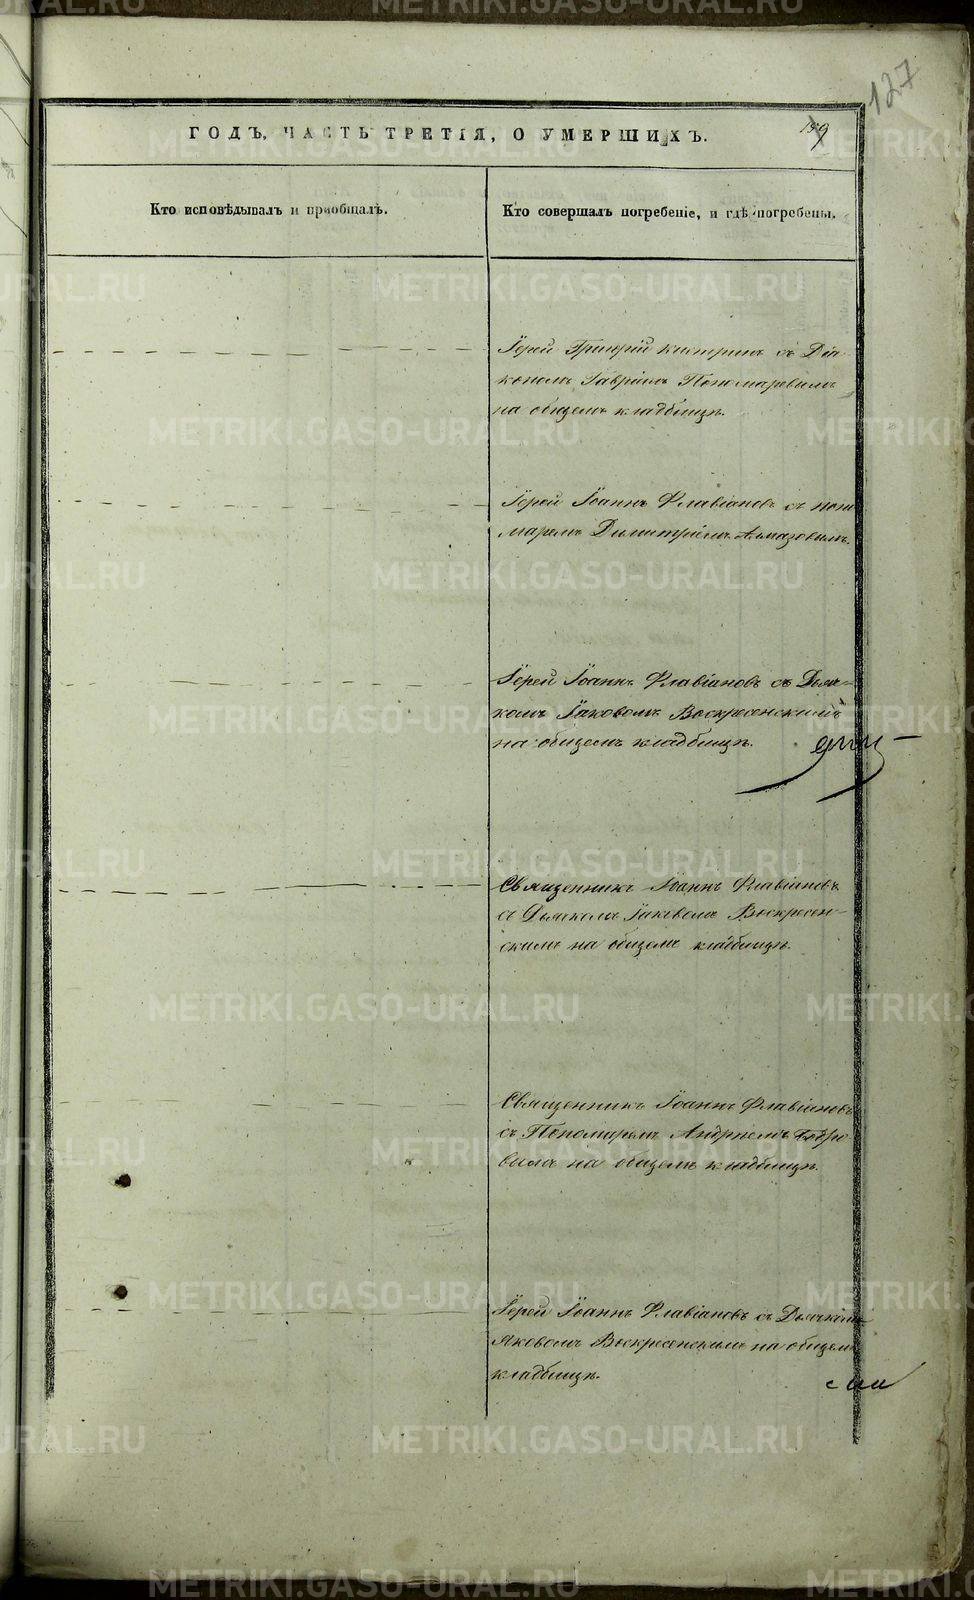 127
159
ГОДЪ, ЧАСТЬ ТРЕТІЯ, О УМЕРШИХЪ.
Кто исповѣдывалъ и пріобщалъ.
Кто совершалъ погребеніе, и гдѣ погребены.
Іерей Григорій съ Діа-
кономъ Гавріиломъ Пономаревымъ
на общемъ кладбищѣ.
Іерей Іоаннъ Флавіановъ съ поно
маремъ Димитріемъ Алмазовымъ.
Іерей Іоаннъ Флавіановъ съ Дьяч-
комъ Іаковомъ Воскресенскимъ
на общемъ кладбищѣ.
Священникъ Іоаннъ Флавіановъ
съ Дьячкомъ Іаковомъ Воскресен-
скимъ на общемъ кладбищѣ.
Священникъ Іоаннъ Флавіановъ
съ Пономаремъ Андреемъ
вымъ на общемъ кладбищѣ.
Іерей Іоаннъ Флавіановъ съ Дьячкомъ
Яковомъ Воскресенскимъ на общемъ
кладбищѣ.
METRIKI.GASO-URAL.RU